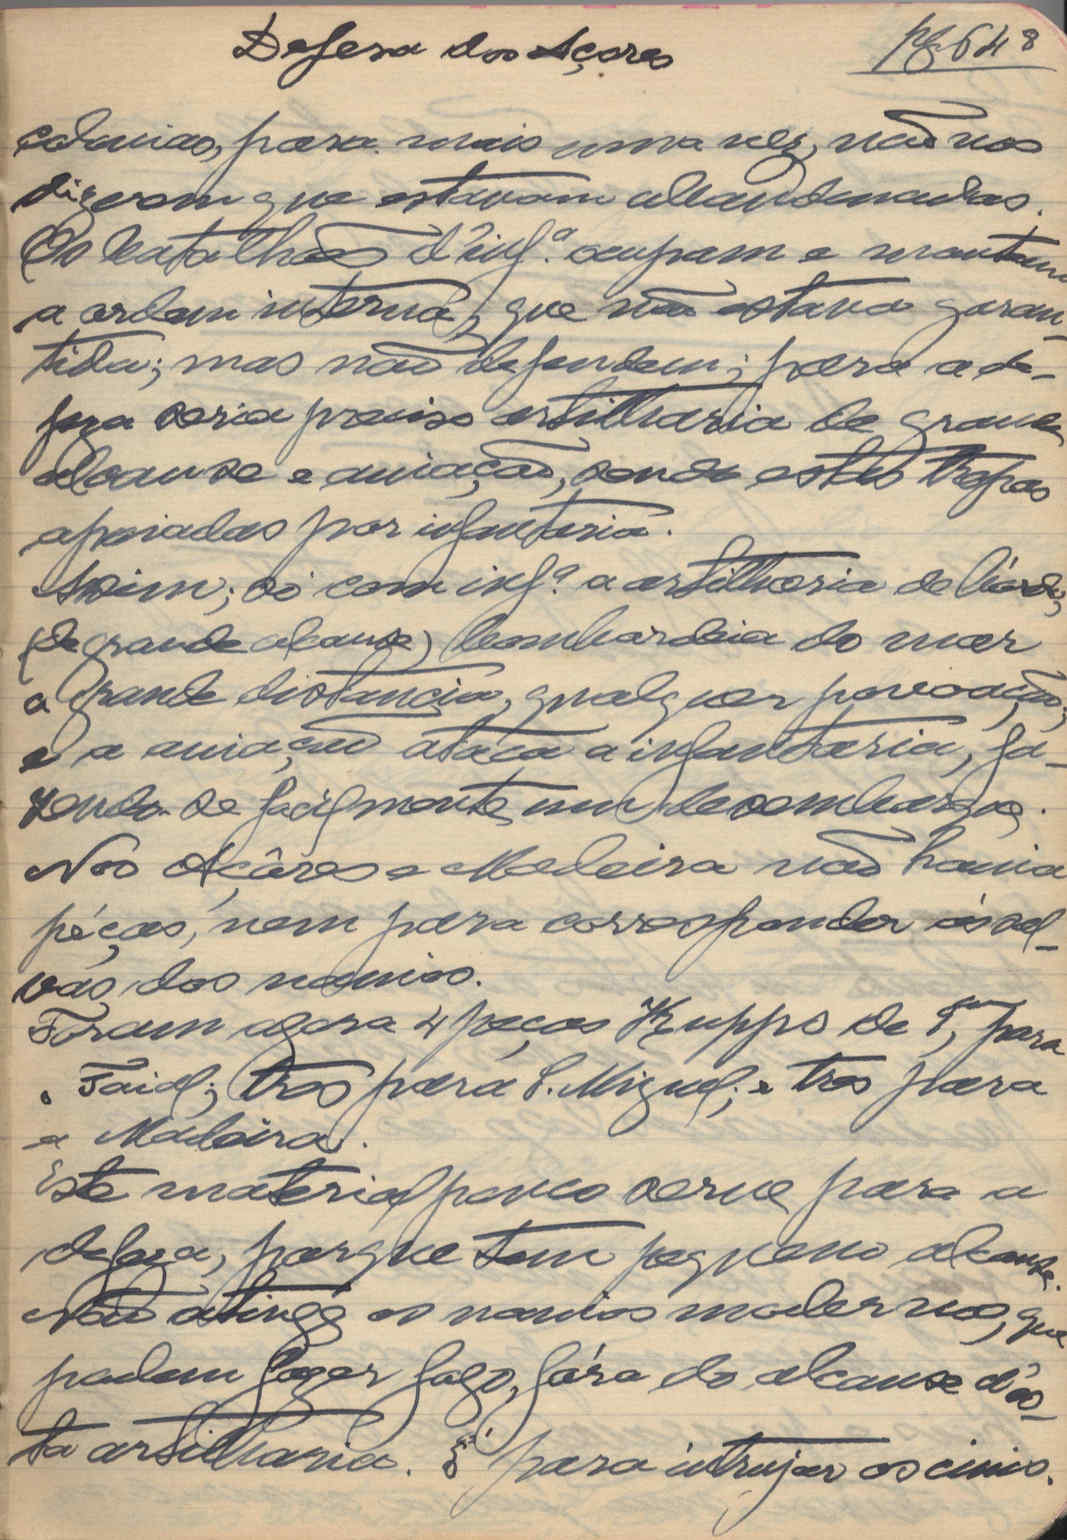 Defesa dos Açores
pg. 648
colonias, para mais uma vez, não nos
dizerem que estavam abandonadas.
Os batalhões d'infª. ocupam e mantem
a ordem interna, que não estava garan-
tida; mas não defendem; para a de-
feza seria preciso artilharia de grande
alcanse e aviação, sendo estas tropas
apoiadas por infantaria.
Assim; só com infª. a artilharia de bórdo,
(de grande alcanse) bombardeia do mar
a grande distancia, qualquer povoação;
e a aviação ataca a infantaria, fa-
zendo-se facilmente um desembarque.
Nos Açôres e Madeira não havia
péças, nem para corresponder ás sal-
vas dos navios.
Foram agora 4 peças Krupps de para
o Faial; tres para S. Miguel; e tres para
a Madeira.
Este material pouco serve para a
defeza, porque tem pequeno alcanse.
Não atinge os navios modernos, que
podem fazer fogo, fóra do alcanse d'es-
ta artilharia. É para intrujar os